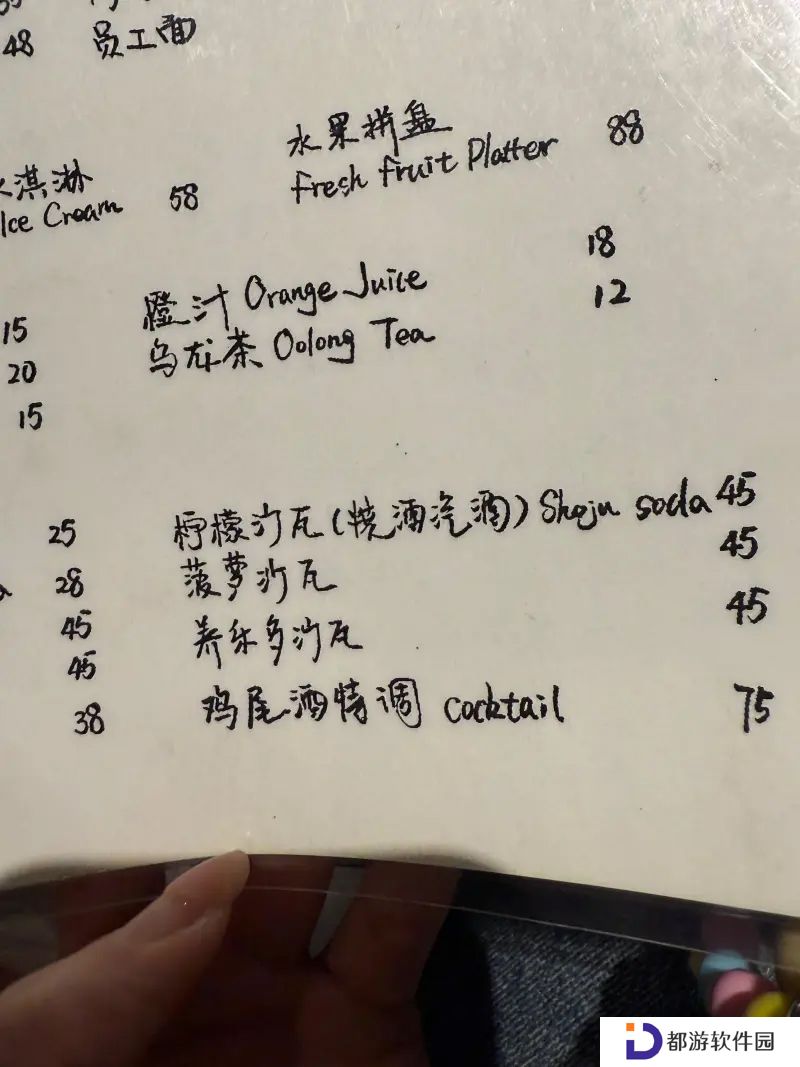 48 员工面
水果拼盘 88
fresh fruit Platter
淇淋 58
Ice Cream
橙汁 Orange Juice 18
乌龙茶 Oolong Tea 12
15
20
15
25 柠檬沙瓦(烧酒汽酒) Shoju soda 45
28 菠萝沙瓦 45
45 养乐多沙瓦 45
45
38 鸡尾酒特调 cocktail 75
都游软件园